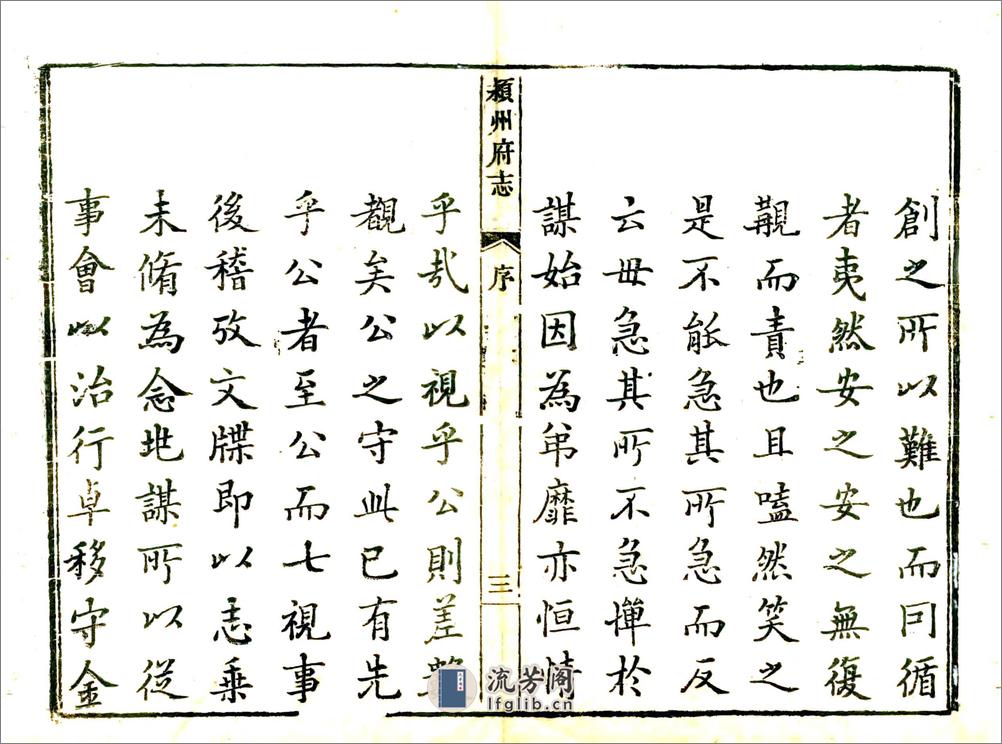 創之所以難也而囙循
者夷然安之安之無復
而責也且嗑然笑之
是不能急其所急而反
云毋急其所不急憚於
謀始因為弟靡亦恒情
潁州府志
序
三
乎哉以視乎公則差
覩矣公之守此已有先
乎公者至公而七視事
後稽攷文牒即以志乗
未脩為念地謀所以從
事會以治行卓移守金
流芳阁